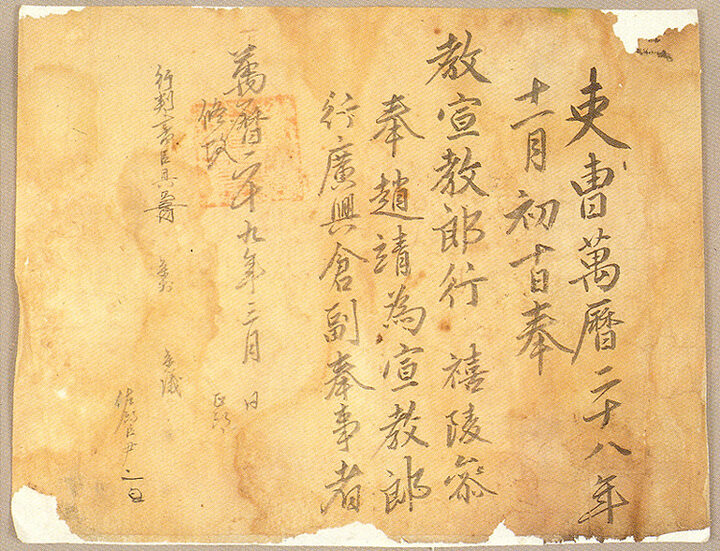 吏曹萬曆二十八年
十一月初十日奉
教宣教郎行 禧陵叅
奉趙靖為宣教郎
行廣興倉副奉事者
萬曆二十九年三月 日
行判書臣具
正郎
佐郎臣尹